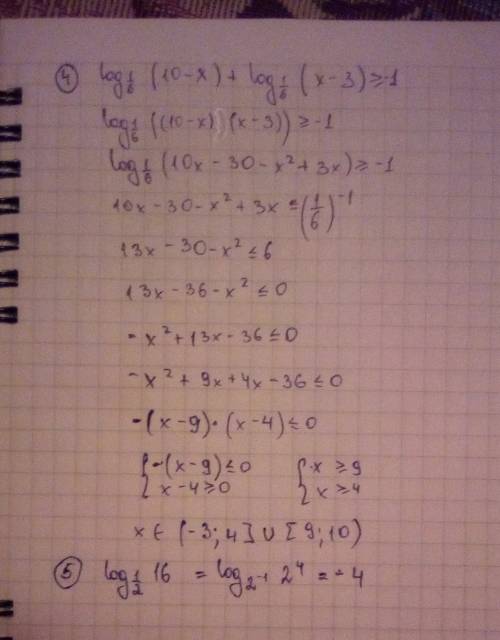 ④ log_{1/6} (10-x) + log_{1/6} (x-3) ≥ -1
log_{1/6} ((10-x) (x-3)) ≥ -1
log_{1/6} (10x - 30 - x² + 3x) ≥ -1
10x - 30 - x² + 3x ≤ (1/6)^{-1}
13x - 30 - x² ≤ 6
13x - 36 - x² ≤ 0
- x² + 13x - 36 ≤ 0
- x² + 9x + 4x - 36 ≤ 0
-(x - 9)·(x - 4) ≤ 0
{ -(x - 9) ≤ 0 { x ≥ 9
{ x - 4 ≥ 0 { x ≥ 4
x ∈ (-3; 4] ∪ [9; 10)
⑤ log_{1/2} 16 = log_{2^{-1}} 2⁴ = -4